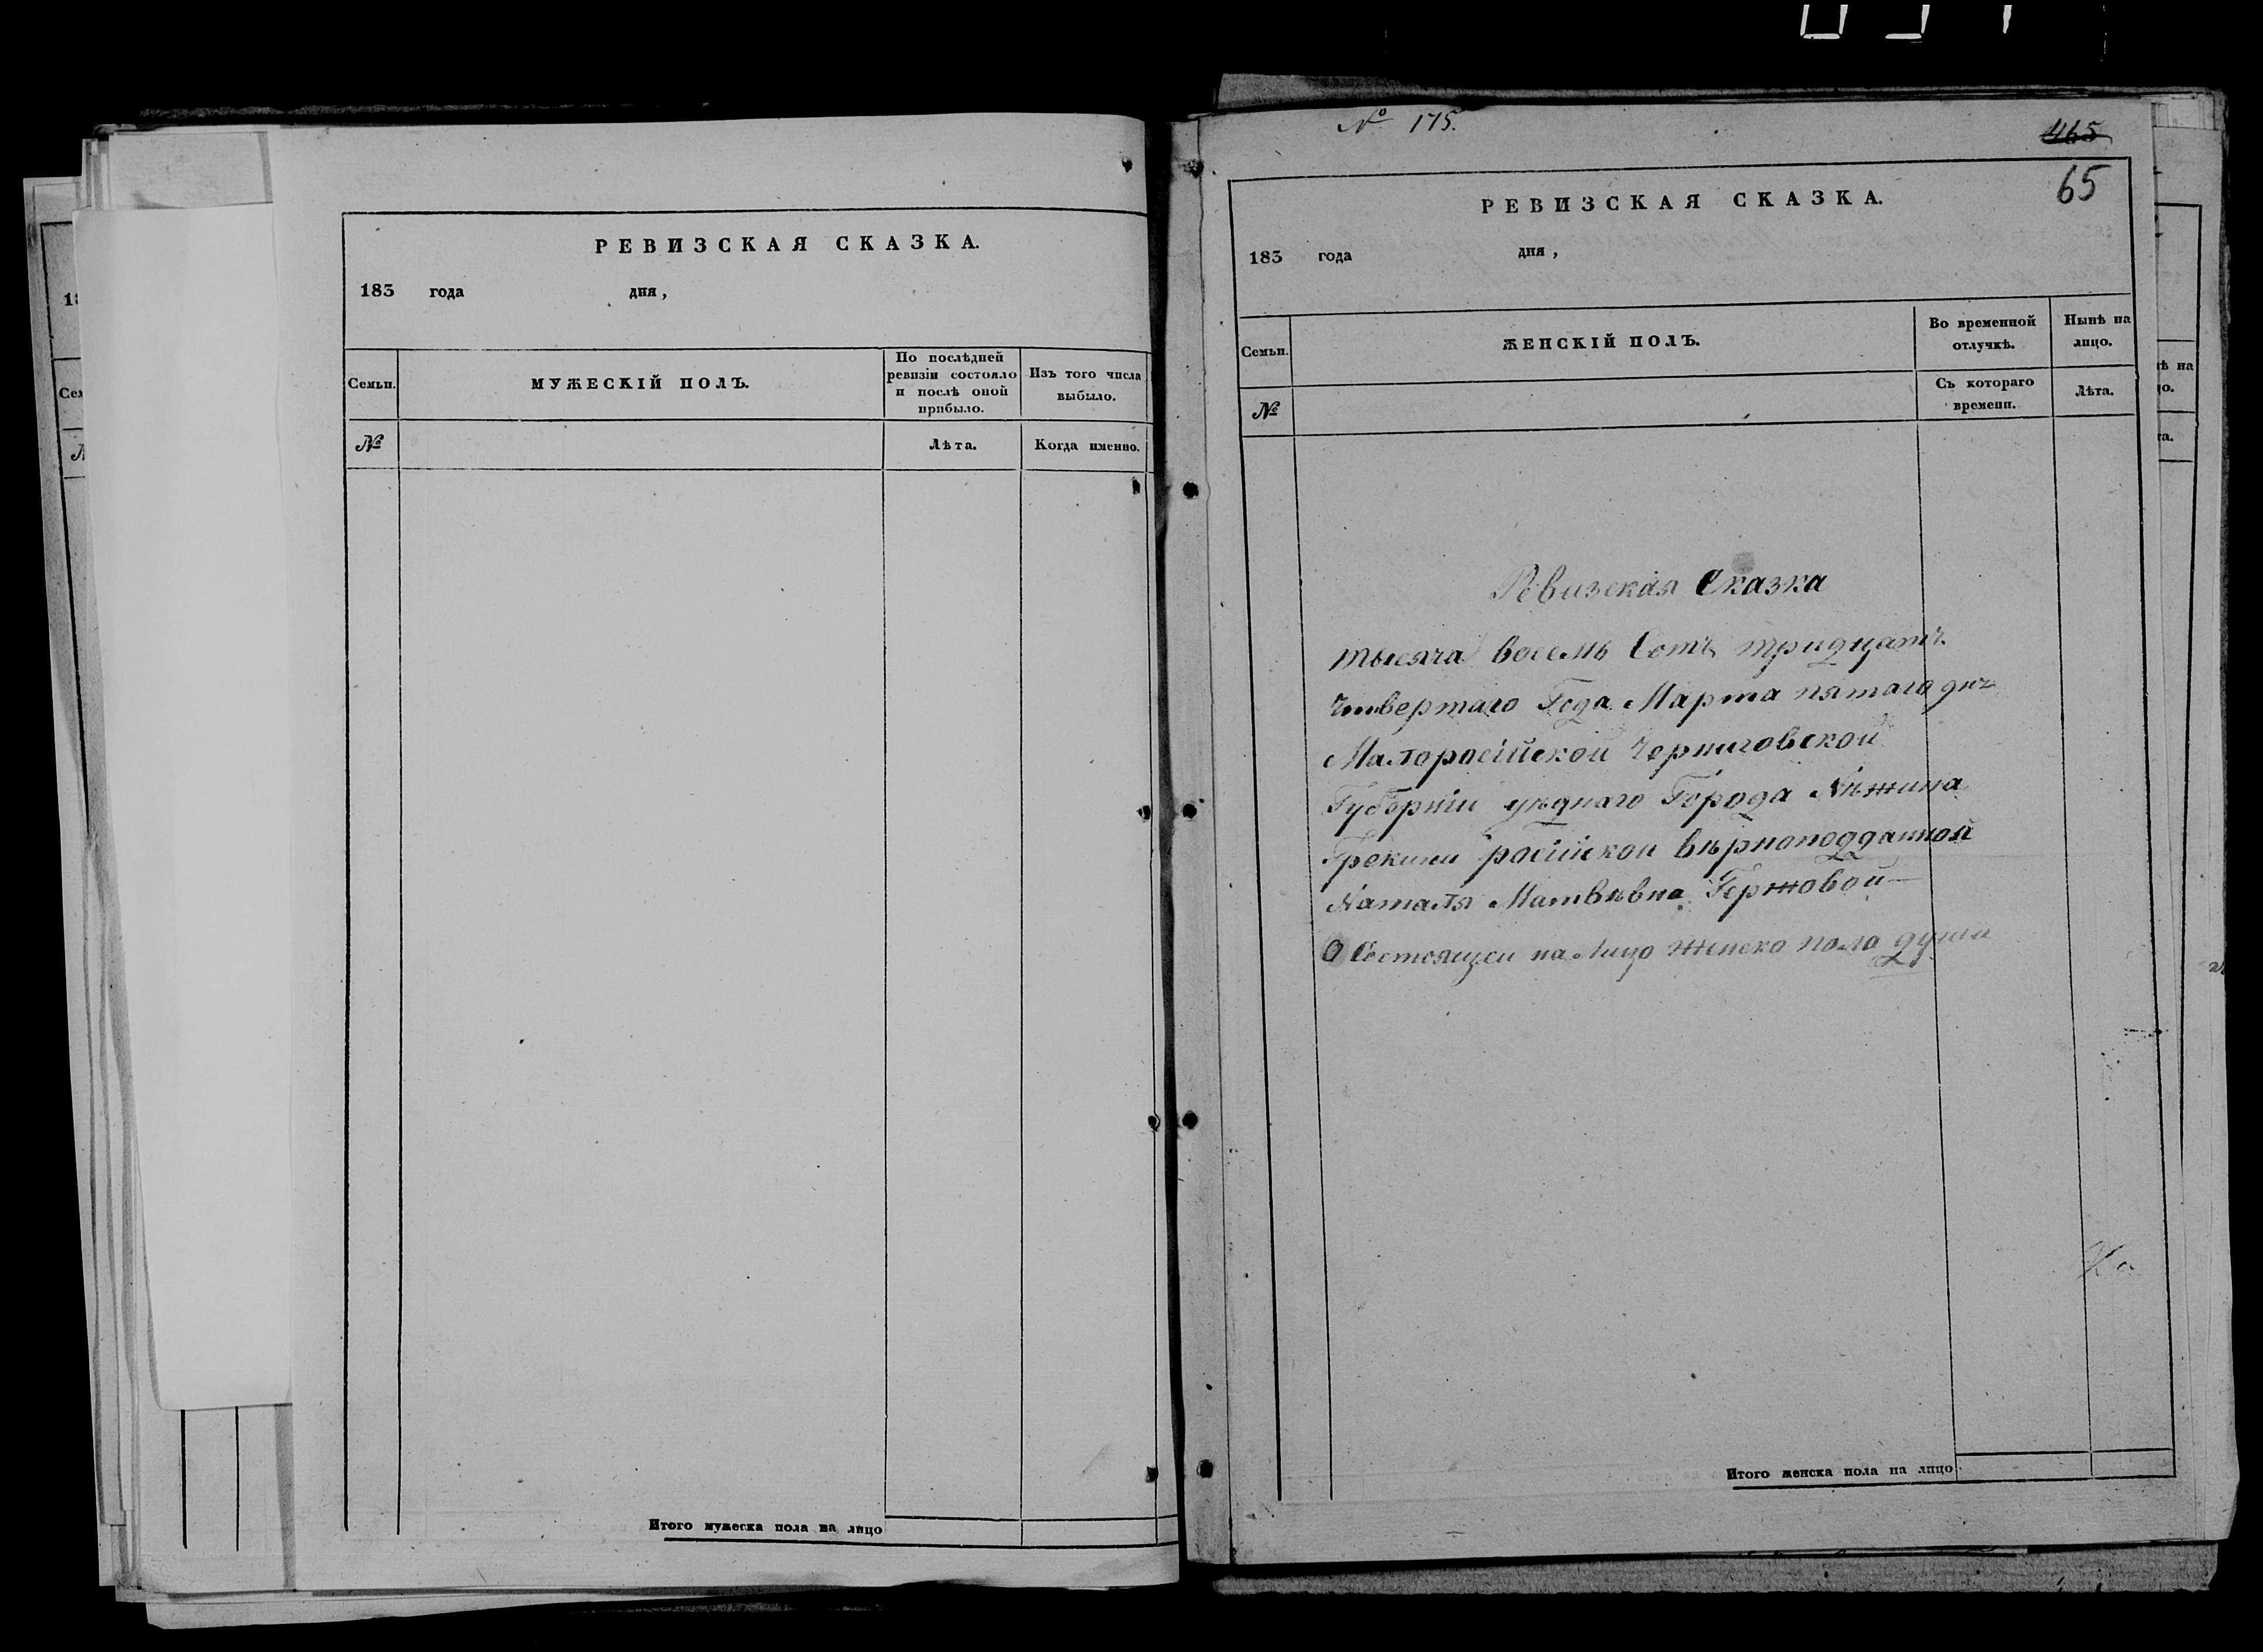 РЕВИЗСКАЯ СКАЗКА.
183 года дня,
Семьи.
МУЖЕСКІЙ ПОЛЪ.
По послѣдней
ревизіи состояло
и послѣ оной
прибыло.
Изъ того числа
выбыло.
№
Лѣта.
Когда именно.
Итого мужеска пола на лицо
№ 175.
465
65
РЕВИЗСКАЯ СКАЗКА.
183 года дня,
Семьи.
ЖЕНСКІЙ ПОЛЪ.
Во временной
отлучкѣ.
Нынѣ на
лицо.
№
Съ котораго
времени.
Лѣта.
Ревизская Сказка
тысяча восемь Сотъ тридцать
Четвертаго Года Марта пятаго дня
Малоросійской Черниговской
Губерніи уѣднаго Города Нѣжина
Грекини російской вѣрноподданной
Наталя Матвѣвна Гержовой
О Состоящей на Лицо женско пола души
Итого женска пола на лицо